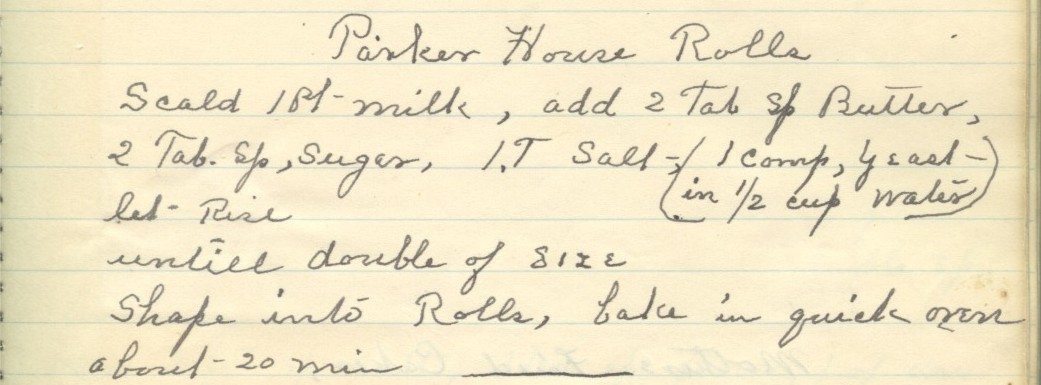 Parker House Rolls
Scald 1 Pt- milk, add 2 Tab Sp Butter,
2 Tab. Sp, Sugar, 1.T Salt-, (1 comp, yeast-
in 1/2 cup water)
let- Rise
untill double of size
Shape into Rolls, bake in quick oven
about- 20 min